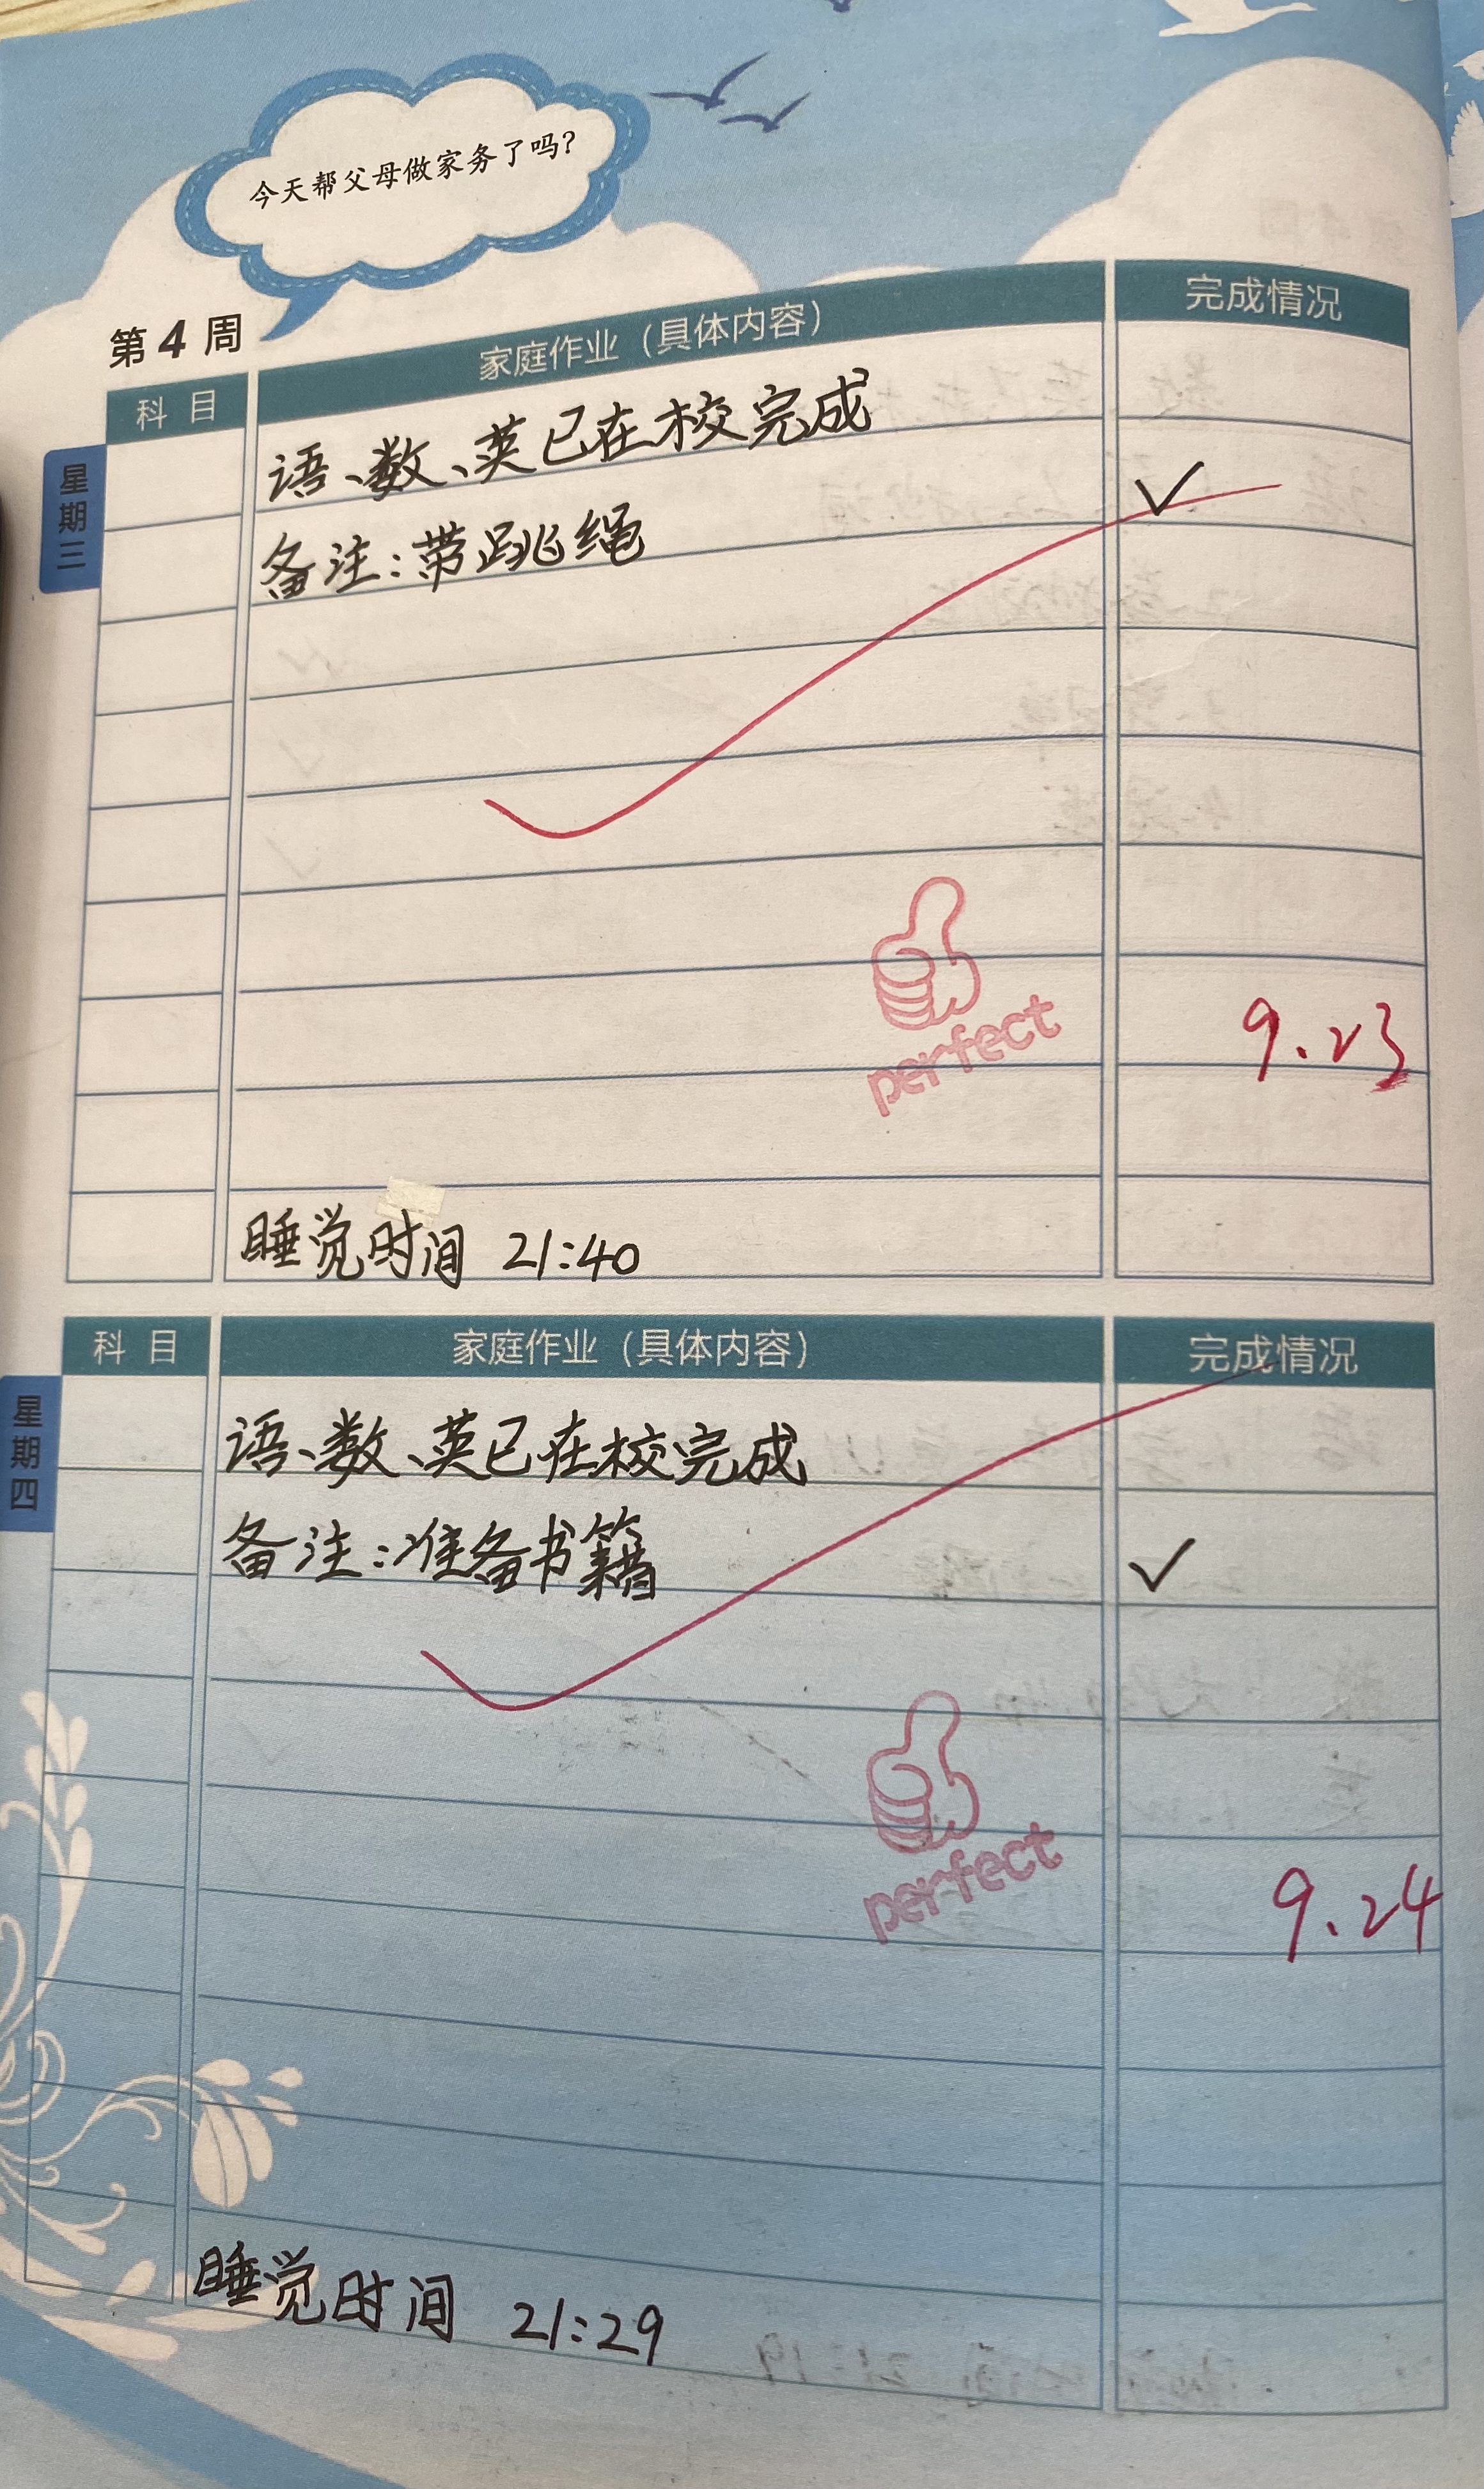 今天帮父母做家务了吗？
第4周
科目 家庭作业（具体内容） 完成情况
星期三
语、数、英已在校完成
备注：带跳绳
perfect
9.23
睡觉时间 21:40
科目 家庭作业（具体内容） 完成情况
星期四
语、数、英已在校完成
备注：准备书籍
perfect
9.24
睡觉时间 21:29